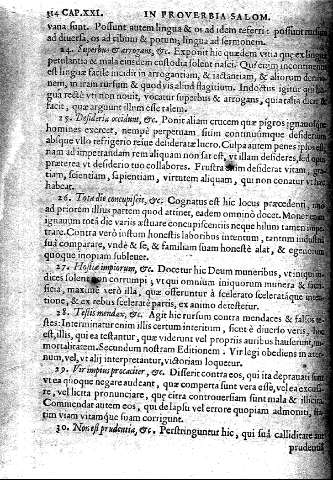 354 CAP. XXI. IN PROVERBIA SALOM.
vana sunt. Possunt autem lingua & os ad idem referri: possunt
ad diversa, os ad cibum & potum; lingua ad sermonem.
24. Superbus & arrogans, &c. Exponit hic quædam vitia que ex lingue
petulantia & mala eiusdem custodia solent nasci. Qui enim incontinentis
est linguæ facile incidit in arrogantiam, & iactantiam, & aliorum
nem, in iram rursum & quodvis aliud flagitium. Indoctus igitur qui
gua recte uti non novit, vocatur superbus & arrogans, qui talia dicit &
facit, quæ arguunt illum esse talem.
25. Desideria occidunt, &c. Ponit aliam crucem quæ pigros ignavosque
homines exercet, nempe perpetuam sitim continuumque desiderium
absque ullo refrigerio reive desideratæ lucro. Culpa autem penes ipsos est,
nam ad impetrandam rem aliquam non sat est, ut illam desideres, sed
præterea ut desiderio tuo collabores. Frustra enim desiderat vitam,
tiam, scientiam, sapientiam, virtutem aliquam, qui non conatur ut
habeat.
26. Tota die concupiscit, &c. Cognatus est hic locus præcedenti,
ad priorem illius partem quod attinet, eadem omnino docet. Monet
ignavum tota die variis æstuare concupiscentiis neque hilum tamen
trare. Contra verò iustum honestis laboribus intentum, tantum industria
suâ comparare, vnde & se, & familiam suam honestè alat, & egenorum
quoque inopiam sublevet.
27. Hostiæ impiorum, &c. Docetur hic Deum muneribus, vt iniqui
dices solent non corrumpi; vt qui omnium iniquorum munera &
ficia, maximè verò illa, quæ offeruntur à scelerato sceleratáque
tione, & ex rebus scelerate partis, ex animo detestetur.
28. Testis mendax, &c. Agit hic rursum contra mendaces & falsos
stes: Interminatur enim illis certum interitum, sicut è diverso veris, hoc
est, illis, qui ea testantur, quæ viderunt vel propriis auribus hauserunt,
mortalitatem. Secundum nostram Editionem. Vir legi obediens in
num, vel, vt alij interpretantur, victoriam loquetur.
29. Vir impius procaciter, &c. Disserit contra eos, qui ita depravati sunt
vt ea quoque negare audeant, quæ comperta sunt vera esse, vel ea
re, vel licita pronunciare, que citra controversiam sunt mala & illicita.
Commendat autem eos, qui de lapsu vel errore quopiam admoniti,
tim viam vitamque suam corrigunt.
30. Non est prudentia, &c. Perstringuntur hic, qui suâ calliditate
prudentiâ